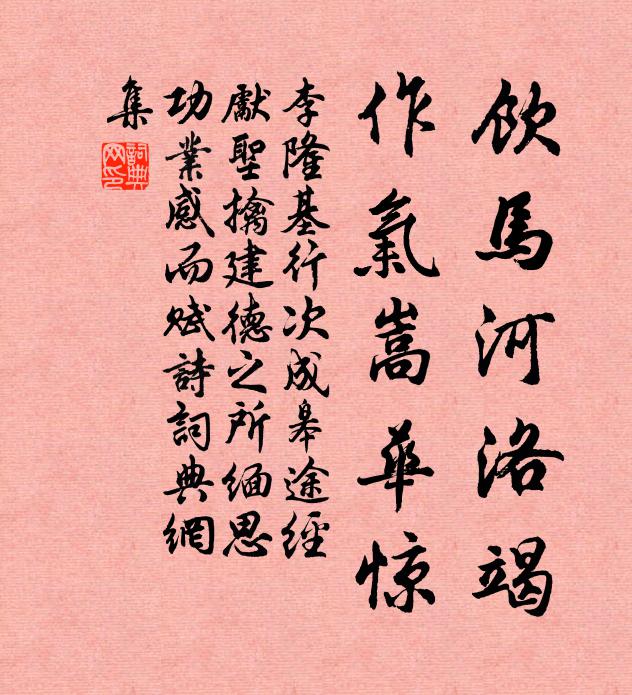 飲馬河洛竭
作氣嵩華惊
李隆基行次成皋途經
獻聖擒建德之所緬思
功業感而賦詩詞典網
集
詞典
网印